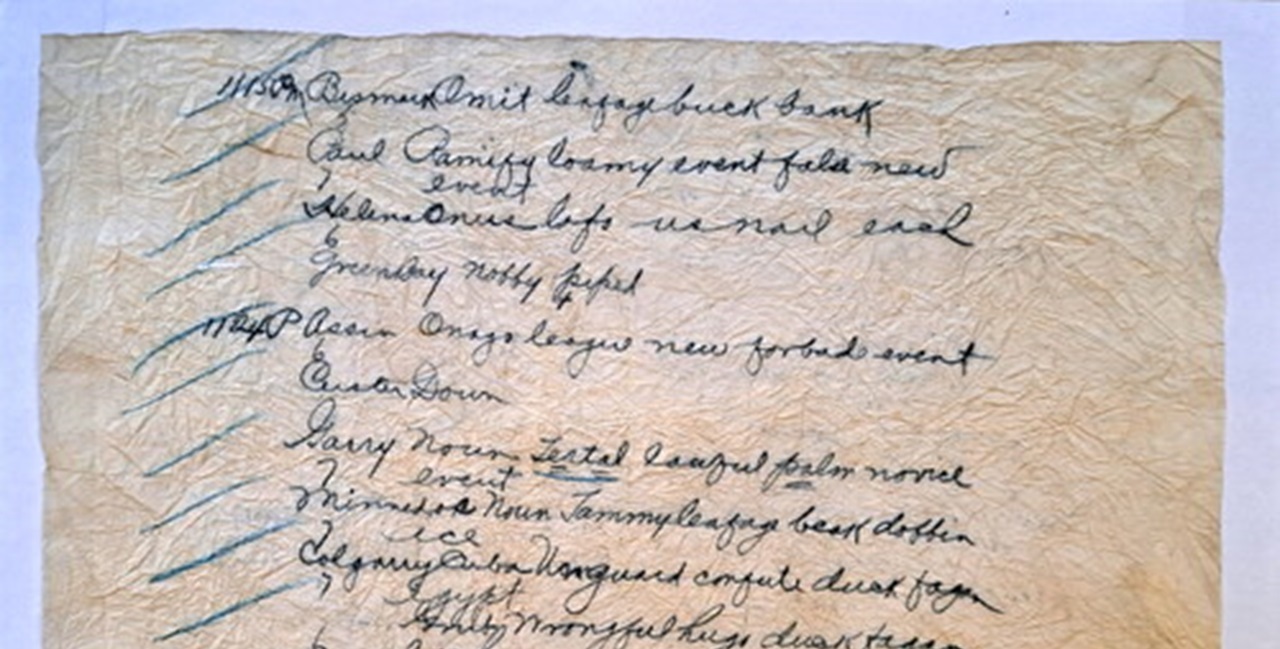 Bismark Omit leafage buck bank
Paul Ramify loamy event false new
event
Helena Onus lofo usnail each
6
Greenbay nobby peped
P Assin Onago league new forbade event
6
Custer Down
Garry Noun Tertal lawful palm novice
7 event
Minnedos Noun Jammyleafage beak dobbin
7 ice
Calgarry Cuba Unguard confute duck fagan
7 Egypt
Wrongful hugo duck fagan